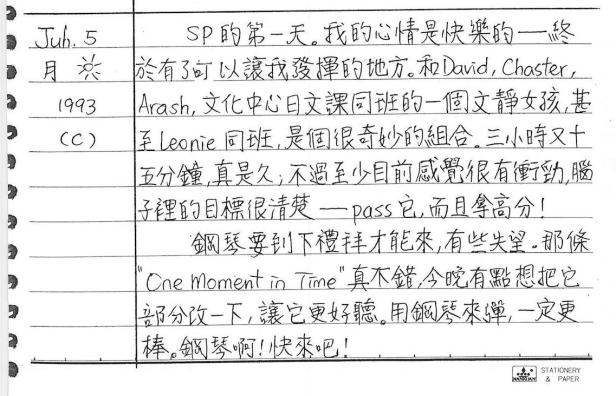 Juh. 5
月 ☼
1993
(C)
SP的第一天。我的心情是快樂的——終
於有了可以讓我發揮的地方。和David, Chaster,
Arash, 文化中心日文課同班的一個文靜女孩,甚
至Leonie同班,是個很奇妙的組合。三小時又十
五分鐘,真是久;不過至少目前感覺很有衝勁,腦
子裡的目標很清楚——pass它,而且拿高分!
鋼琴要到下禮拜才能來,有些失望。那條
"One Moment in Time"真不錯,今晚有點想把它
部分改一下,讓它更好聽。用鋼琴來彈,一定更
棒。鋼琴啊!快來吧!
STATIONERY
& PAPER